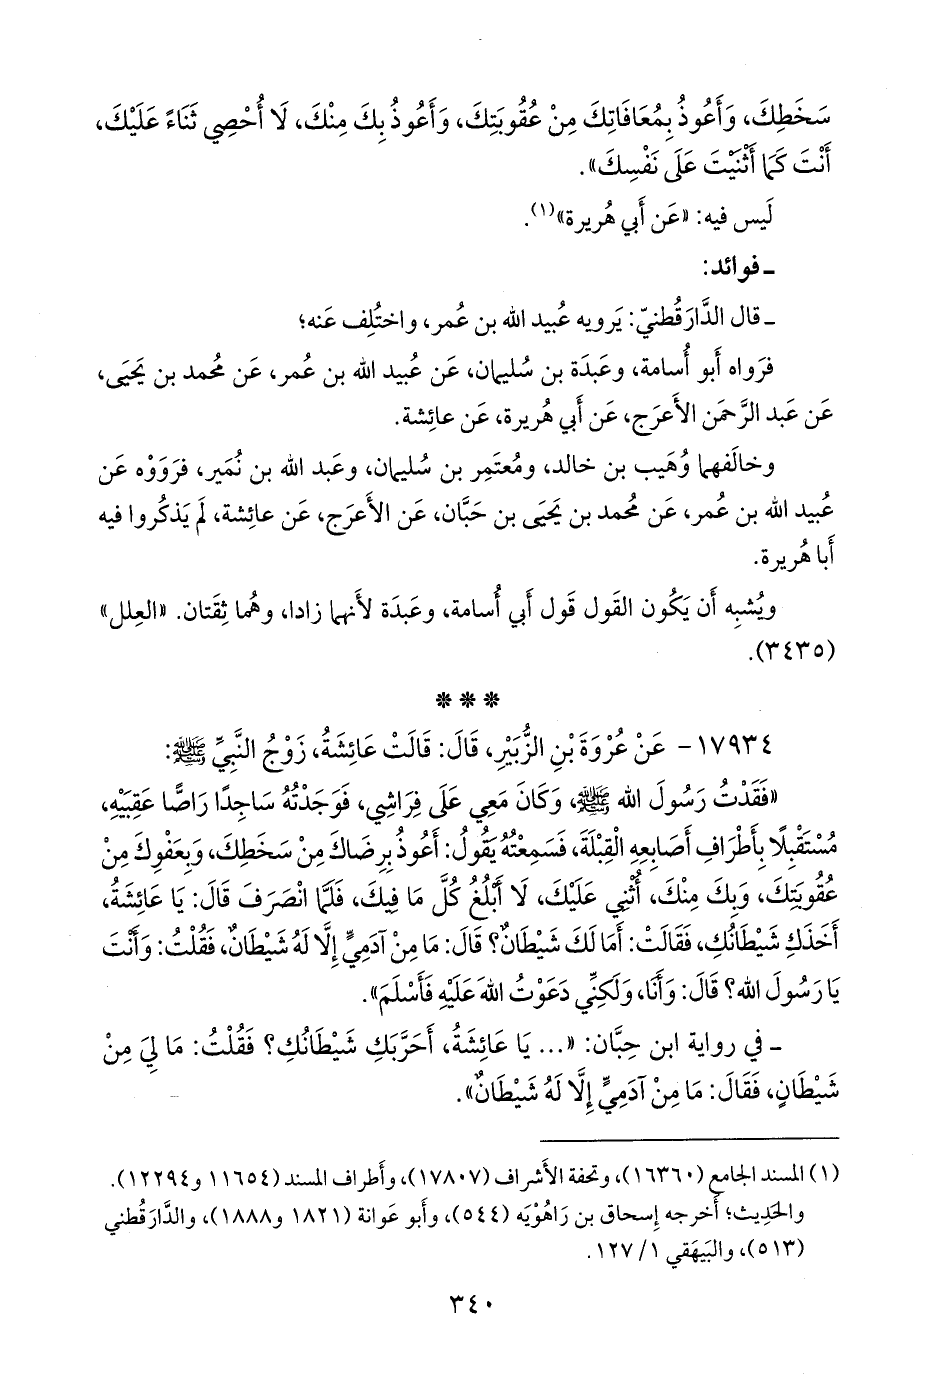 سَخَطِكَ، وَأَعُوذُ بِمُعَافَاتِكَ مِنْ عُقُوبَتِكَ، وَأَعُوذُ بِكَ مِنْكَ، لَا أُحْصِي ثَنَاءً عَلَيْكَ،
أَنْتَ كَمَا أَثْنَيْتَ عَلَى نَفْسِكَ».
لَيس فيه: «عَن أَبي هُريرة»(١).
ـ فوائد:
ـ قال الدَّارَقُطنيّ: يَرويه عُبيد الله بن عُمر، واختُلِف عَنه؛
فرَواه أَبو أُسامة، وعَبدَة بن سُليمان، عَن عُبيد الله بن عُمر، عَن مُحمد بن يَحيَى،
عَن عَبد الرَّحمَن الأَعرَج، عَن أَبي هُريرة، عَن عائِشة.
وخالَفهما وُهَيب بن خالد، ومُعتَمِر بن سُليمان، وعَبد الله بن نُمَير، فرَوَوْه عَن
عُبيد الله بن عُمر، عَن مُحمد بن يَحيَى بن حَبَّان، عَن الأَعرَج، عَن عائِشة، لَم يَذكُروا فيه
أَبا هُريرة.
ويُشبِه أَن يَكُون القول قَول أَبي أُسامة، وعَبدَة لأَنهما زادا، وهُما ثِقَتان. «العِلل»
(٣٤٣٥).
* * *
١٧٩٣٤- عَنْ عُرْوَةَ بْنِ الزُّبَيْرِ، قَالَ: قَالَتْ عَائِشَةُ، زَوْجُ النَّبِيِّ ﷺ:
«فَقَدْتُ رَسُولَ الله ﷺ، وَكَانَ مَعِي عَلَى فِرَاشِي، فَوَجَدْتُهُ سَاجِدًا رَاصًّا عَقِبَيْهِ،
مُسْتَقْبِلًا بِأَطْرَافِ أَصَابِعِهِ الْقِبْلَةَ، فَسَمِعْتُهُ يَقُولُ: أَعُوذُ بِرِضَاكَ مِنْ سَخَطِكَ، وَبِعَفْوِكَ مِنْ
عُقُوبَتِكَ، وَبِكَ مِنْكَ، أُثْنِي عَلَيْكَ، لَا أَبْلُغُ كُلَّ مَا فِيكَ، فَلَمَّا انْصَرَفَ قَالَ: يَا عَائِشَةُ،
أَخَذَكِ شَيْطَانُكِ، فَقَالَتْ: أَمَا لَكَ شَيْطَانٌ؟ قَالَ: مَا مِنْ آدَمِيٍّ إِلَّا لَهُ شَيْطَانٌ، فَقُلْتُ: وَأَنْتَ
يَا رَسُولَ الله؟ قَالَ: وَأَنَا، وَلَكِنِّي دَعَوْتُ اللهَ عَلَيْهِ فَأَسْلَمَ».
ـ في رواية ابن حِبَّان: «... يَا عَائِشَةُ، أَحَرَّبَكِ شَيْطَانُكِ؟ فَقُلْتُ: مَا لِيَ مِنْ
شَيْطَانٍ، فَقَالَ: مَا مِنْ آدَمِيٍّ إِلَّا لَهُ شَيْطَانٌ».
(١) المسند الجامع (١٦٣٦٠)، وتحفة الأَشراف (١٧٨٠٧)، وأَطراف المسند (١١٦٥٤ و١٢٢٩٤).
والحَدِيث؛ أَخرجه إِسحاق بن رَاهُوْيَه (٥٤٤)، وأَبو عَوانة (١٨٢١ و١٨٨٨)، والدَّارَقُطني
(٥١٣)، والبَيهَقي ١/ ١٢٧.
٣٤٠